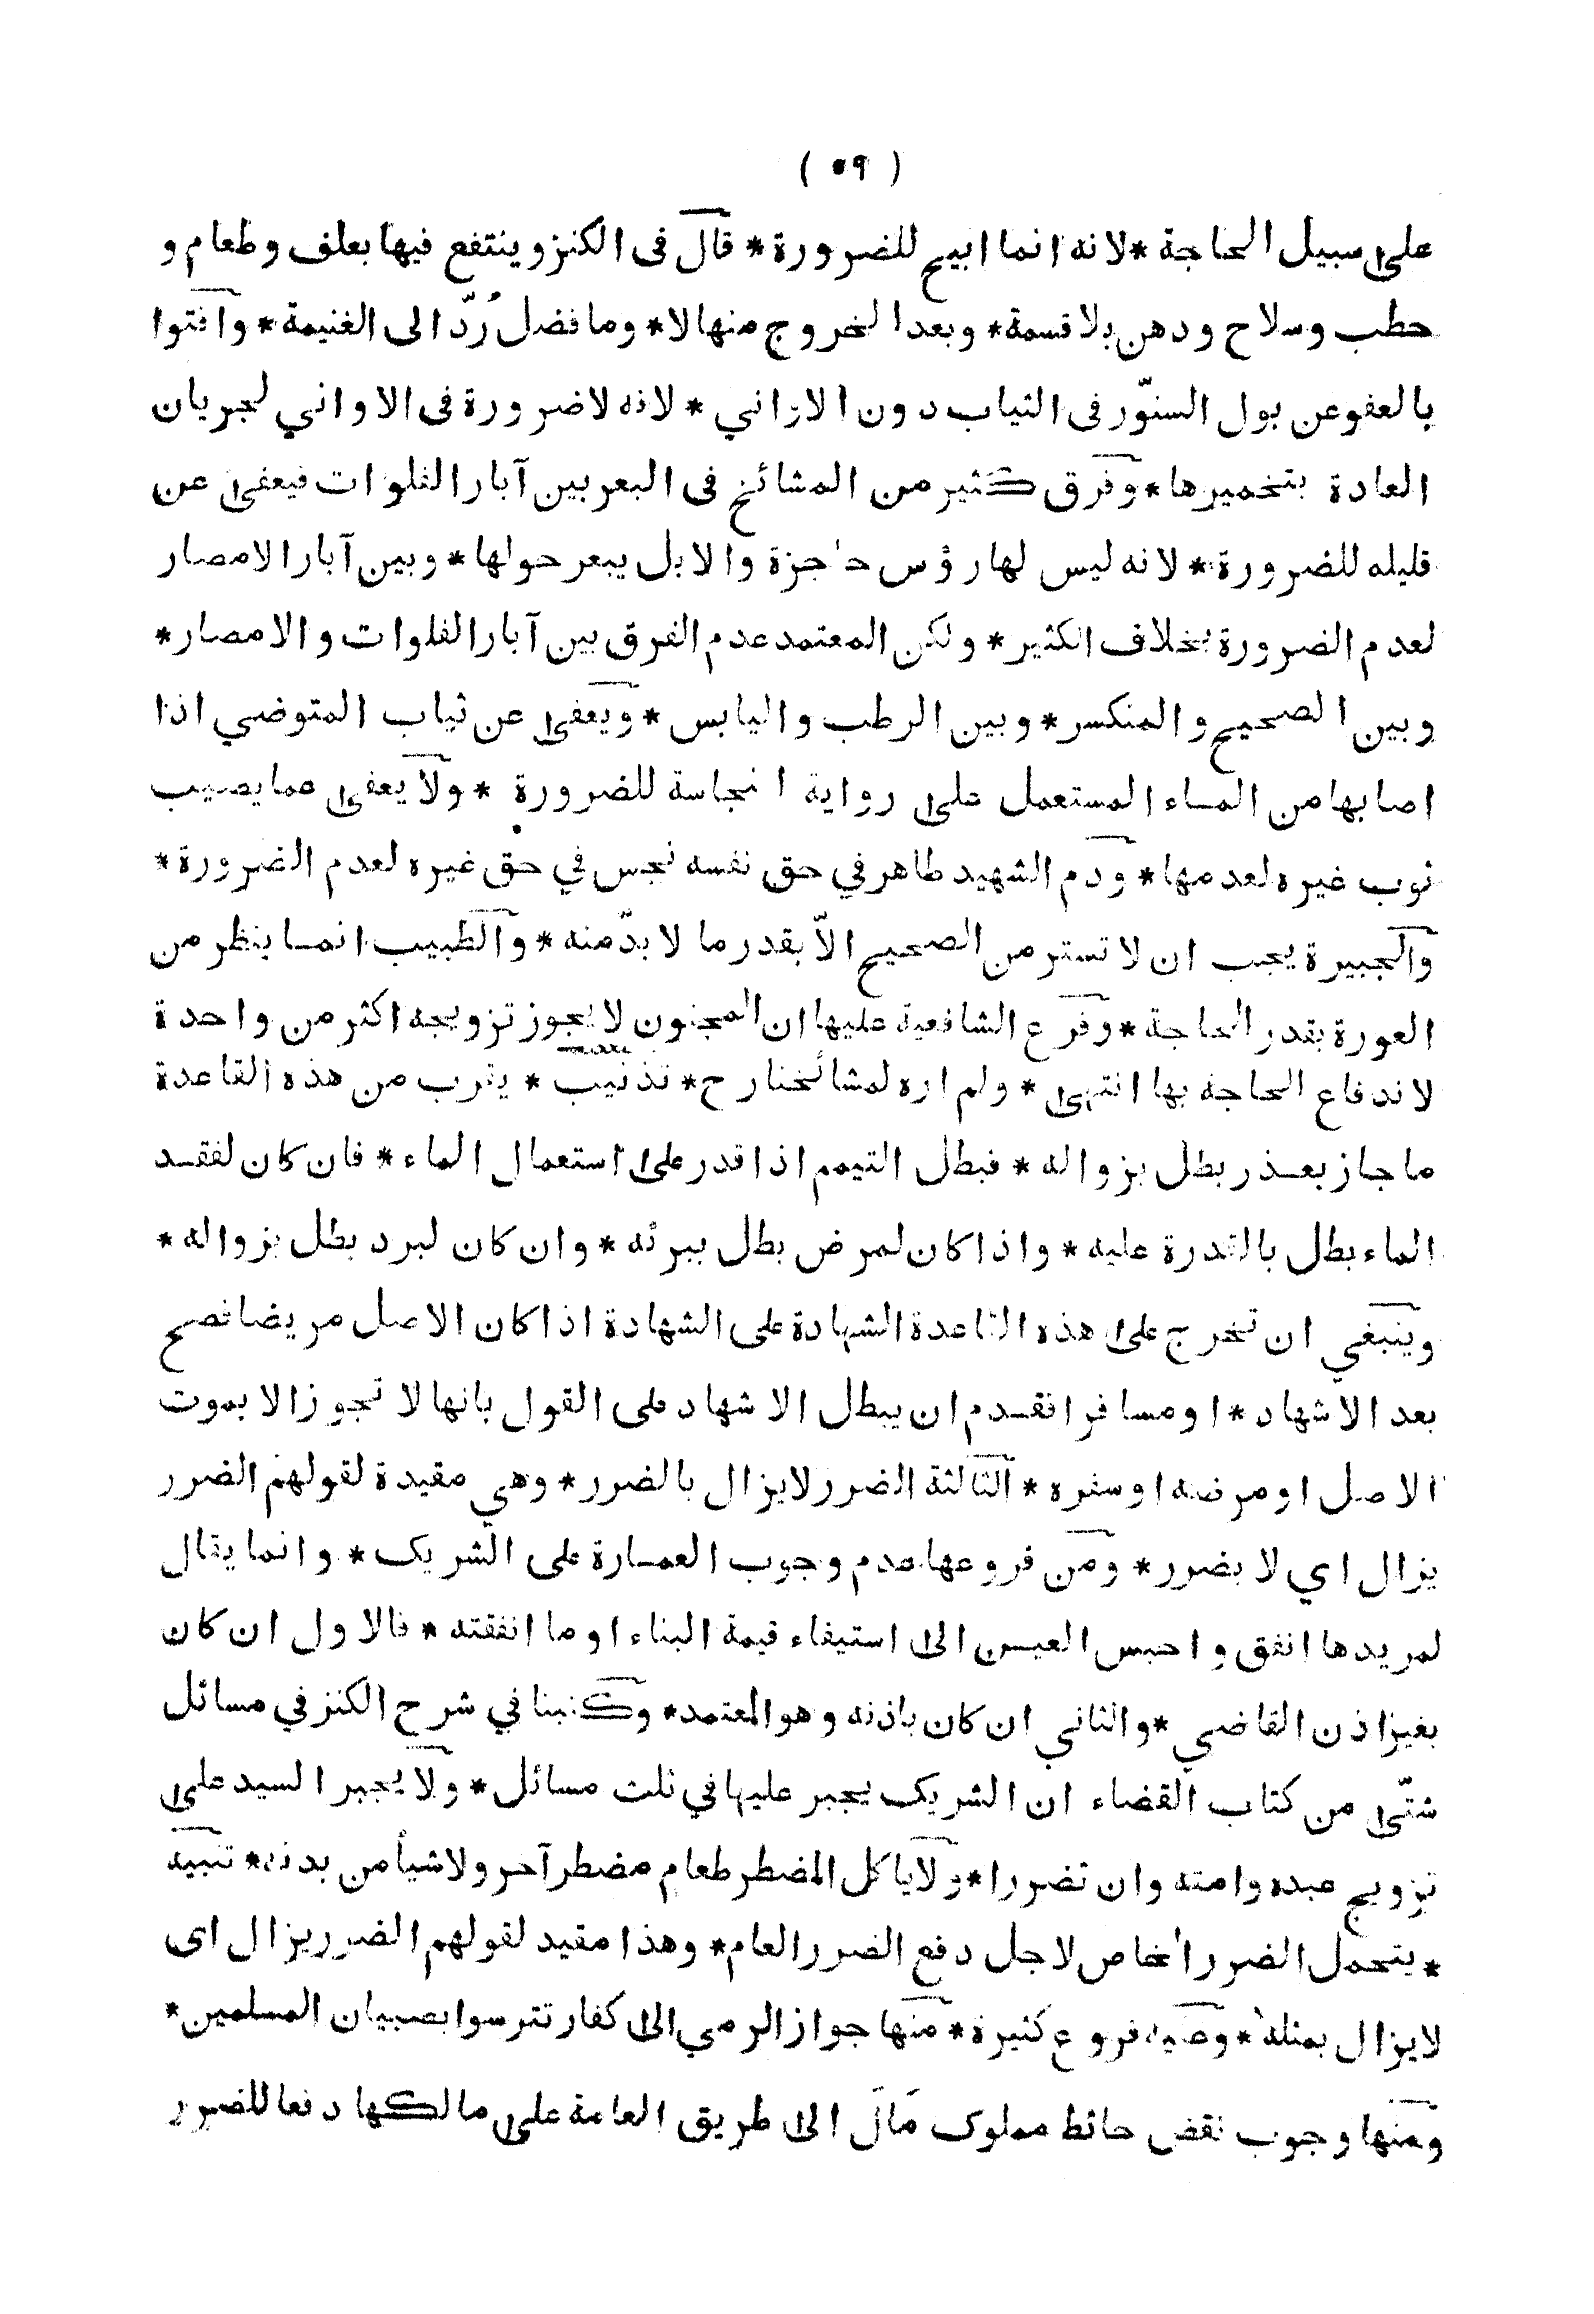 ( ٥٩ )
على سبيل الحاجة * لانه انما ابيح للضرورة * قال فى الكنز وينتفع فيها بعلف وطعام و
حطب وسلاح ودهن بلا قسمة * وبعد الخروج منها لا * وما فضل رُدّ الى الغنيمة * وافتوا
بالعفو عن بول السنّور فى الثياب دون الاوانى * لانه لا ضرورة فى الاوانى لجريان
العادة بتخميرها * وفرق كثير من المشائخ فى البعر بين آبار الفلوات فيعفى عن
قليله للضرورة * لانه ليس لها رؤس حاجزة والابل يبعر حولها * وبين آبار الامصار
لعدم الضرورة بخلاف الكثير * ولكن المعتمد عدم الفرق بين آبار الفلوات والامصار *
وبين الصحيح والمنكسر * وبين الرطب واليابس * ويعفى عن ثياب المتوضي اذا
اصابها من الماء المستعمل على رواية النجاسة للضرورة * ولا يعفى عما يصيب
ثوب غيره لعدمها * ودم الشهيد طاهر في حق نفسه نجس في حق غيره لعدم الضرورة *
والجبيرة يجب ان لا تستر من الصحيح الاّ بقدر ما لا بدّ منه * والطبيب انما ينظر من
العورة بقدر الحاجة * وفرع الشافعية عليها ان المجنون لا يجوز تزويجه اكثر من واحدة
لاندفاع الحاجة بها انتهى * ولم اره لمشائخنا رح * تذنيب * يقرب من هذه القاعدة
ما جاز بعذر بطل بزواله * فبطل التيمم اذا قدر على استعمال الماء * فان كان لفقد
الماء بطل بالقدرة عليه * واذا كان لمرض بطل ببرئه * وان كان لبرد بطل بزواله *
وينبغي ان تخرج على هذه القاعدة الشهادة على الشهادة اذا كان الاصل مريضا فصح
بعد الاشهاد * او مسافرا فقدم ان يبطل الاشهاد على القول بانها لا تجوز الا بموت
الاصل او مرضه او سفره * الثالثة الضرر لا يزال بالضرر * وهي مقيدة لقولهم الضرر
يزال اي لا بضرر * ومن فروعها عدم وجوب العمارة على الشريك * وانما يقال
لمريدها انفق واحبس العين الى استيفاء قيمة البناء او ما انفقته * فالاول ان كان
بغير اذن القاضي * والثاني ان كان باذنه وهو المعتمد * وكتبنا في شرح الكنز في مسائل
شتّى من كتاب القضاء ان الشريك يجبر عليها في ثلث مسائل * ولا يجبر السيد على
تزويج عبده وامته وان تضررا * ولا ياكل المضطر طعام مضطر آخر ولا شيأ من بدنه * تنبيه
* يتحمل الضرر الخاص لاجل دفع الضرر العام * وهذا مقيد لقولهم الضرر يزال اى
لا يزال بمثله * وعليه فروع كثيرة * منها جواز الرمي الى كفار تترسوا بصبيان المسلمين *
ومنها وجوب نقض حائط مملوك مَالَ الى طريق العامة على مالكها دفعا للضرر